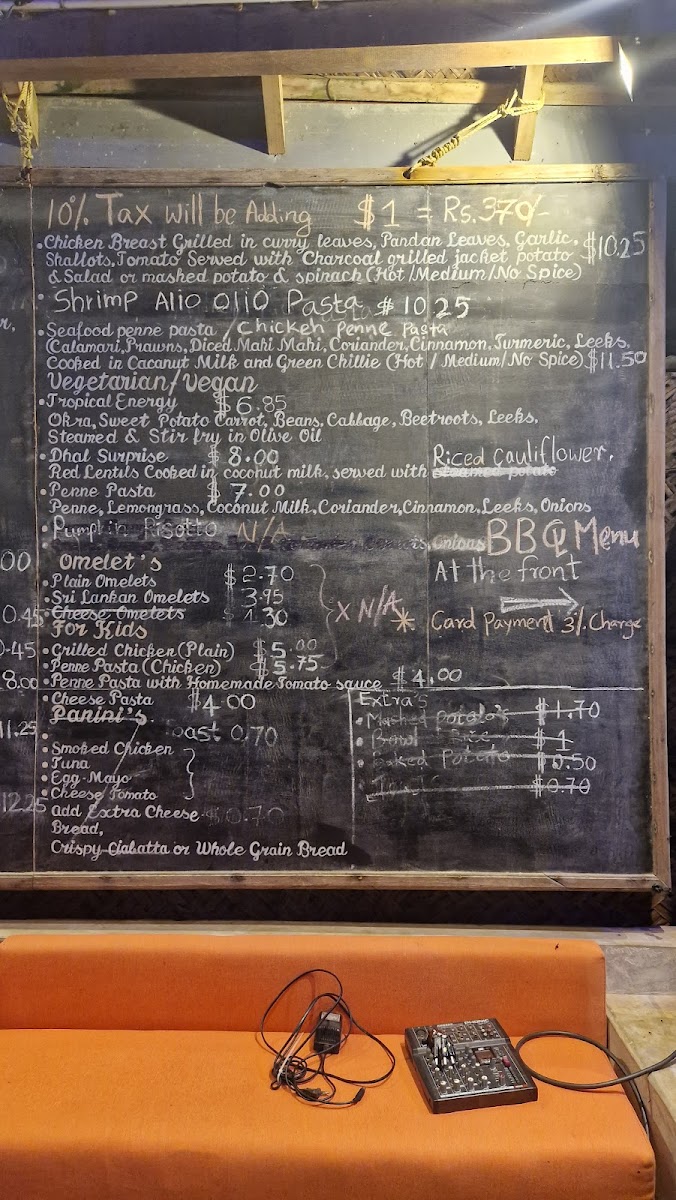 10% Tax will be Adding $1 = Rs.370/-
• Chicken Breast Grilled in curry leaves, Pandan Leaves, Garlic,
Shallots, Tomato Served with Charcoal grilled jacket potato $10.25
& Salad or mashed potato & spinach (Hot /Medium/No Spice)
• Shrimp Alio Olio Pasta $10 25
• Seafood penne pasta / Chicken Penne Pasta
(Calamari, Prawns, Diced Mahi Mahi, Coriander, Cinnamon, Turmeric, Leeks,
Cooked in Cacanut Milk and Green Chillie (Hot / Medium/No Spice) $11.50
Vegetarian/Vegan
• Tropical Energy $6.85
Okra, Sweet Potato Carrot, Beans, Cabbage, Beetroots, Leeks.
Steamed & Stir fry in Olive Oil
• Dhal Surprise $8.00
Red Lentils Cooked in coconut milk, served with Riced Cauliflower.
steamed potato
• Penne Pasta $7.00
Penne, Lemongrass, Coconut Milk, Coriander, Cinnamon, Leeks, Onions
• Pumpkin Risotto N/A
Onions
BBQ Menu
At the front
Card Payment 3% Charge
00
Omelet's
• Plain Omelets $2.70
• Sri Lankan Omelets 3.95
0.45
• Cheese Omelets $4.30
x N/A *
For Kids
0.45
• Grilled Chicken (Plain) $5.00
• Penne Pasta (Chicken) $5.75
8.00
• Penne Pasta with Homemade Tomato sauce $4.00
• Cheese Pasta $4.00
Panini's
11.25
oast 0.70
• Smoked Chicken
• Tuna
• Egg Mayo
• Cheese Tomato
12.25
• Add Extra Cheese $0.70
Bread,
Crispy Ciabatta or Whole Grain Bread
Extra's
• Mashed potato's $1.70
• Bowl Rice $1
• Baked Potato .50
$0.70